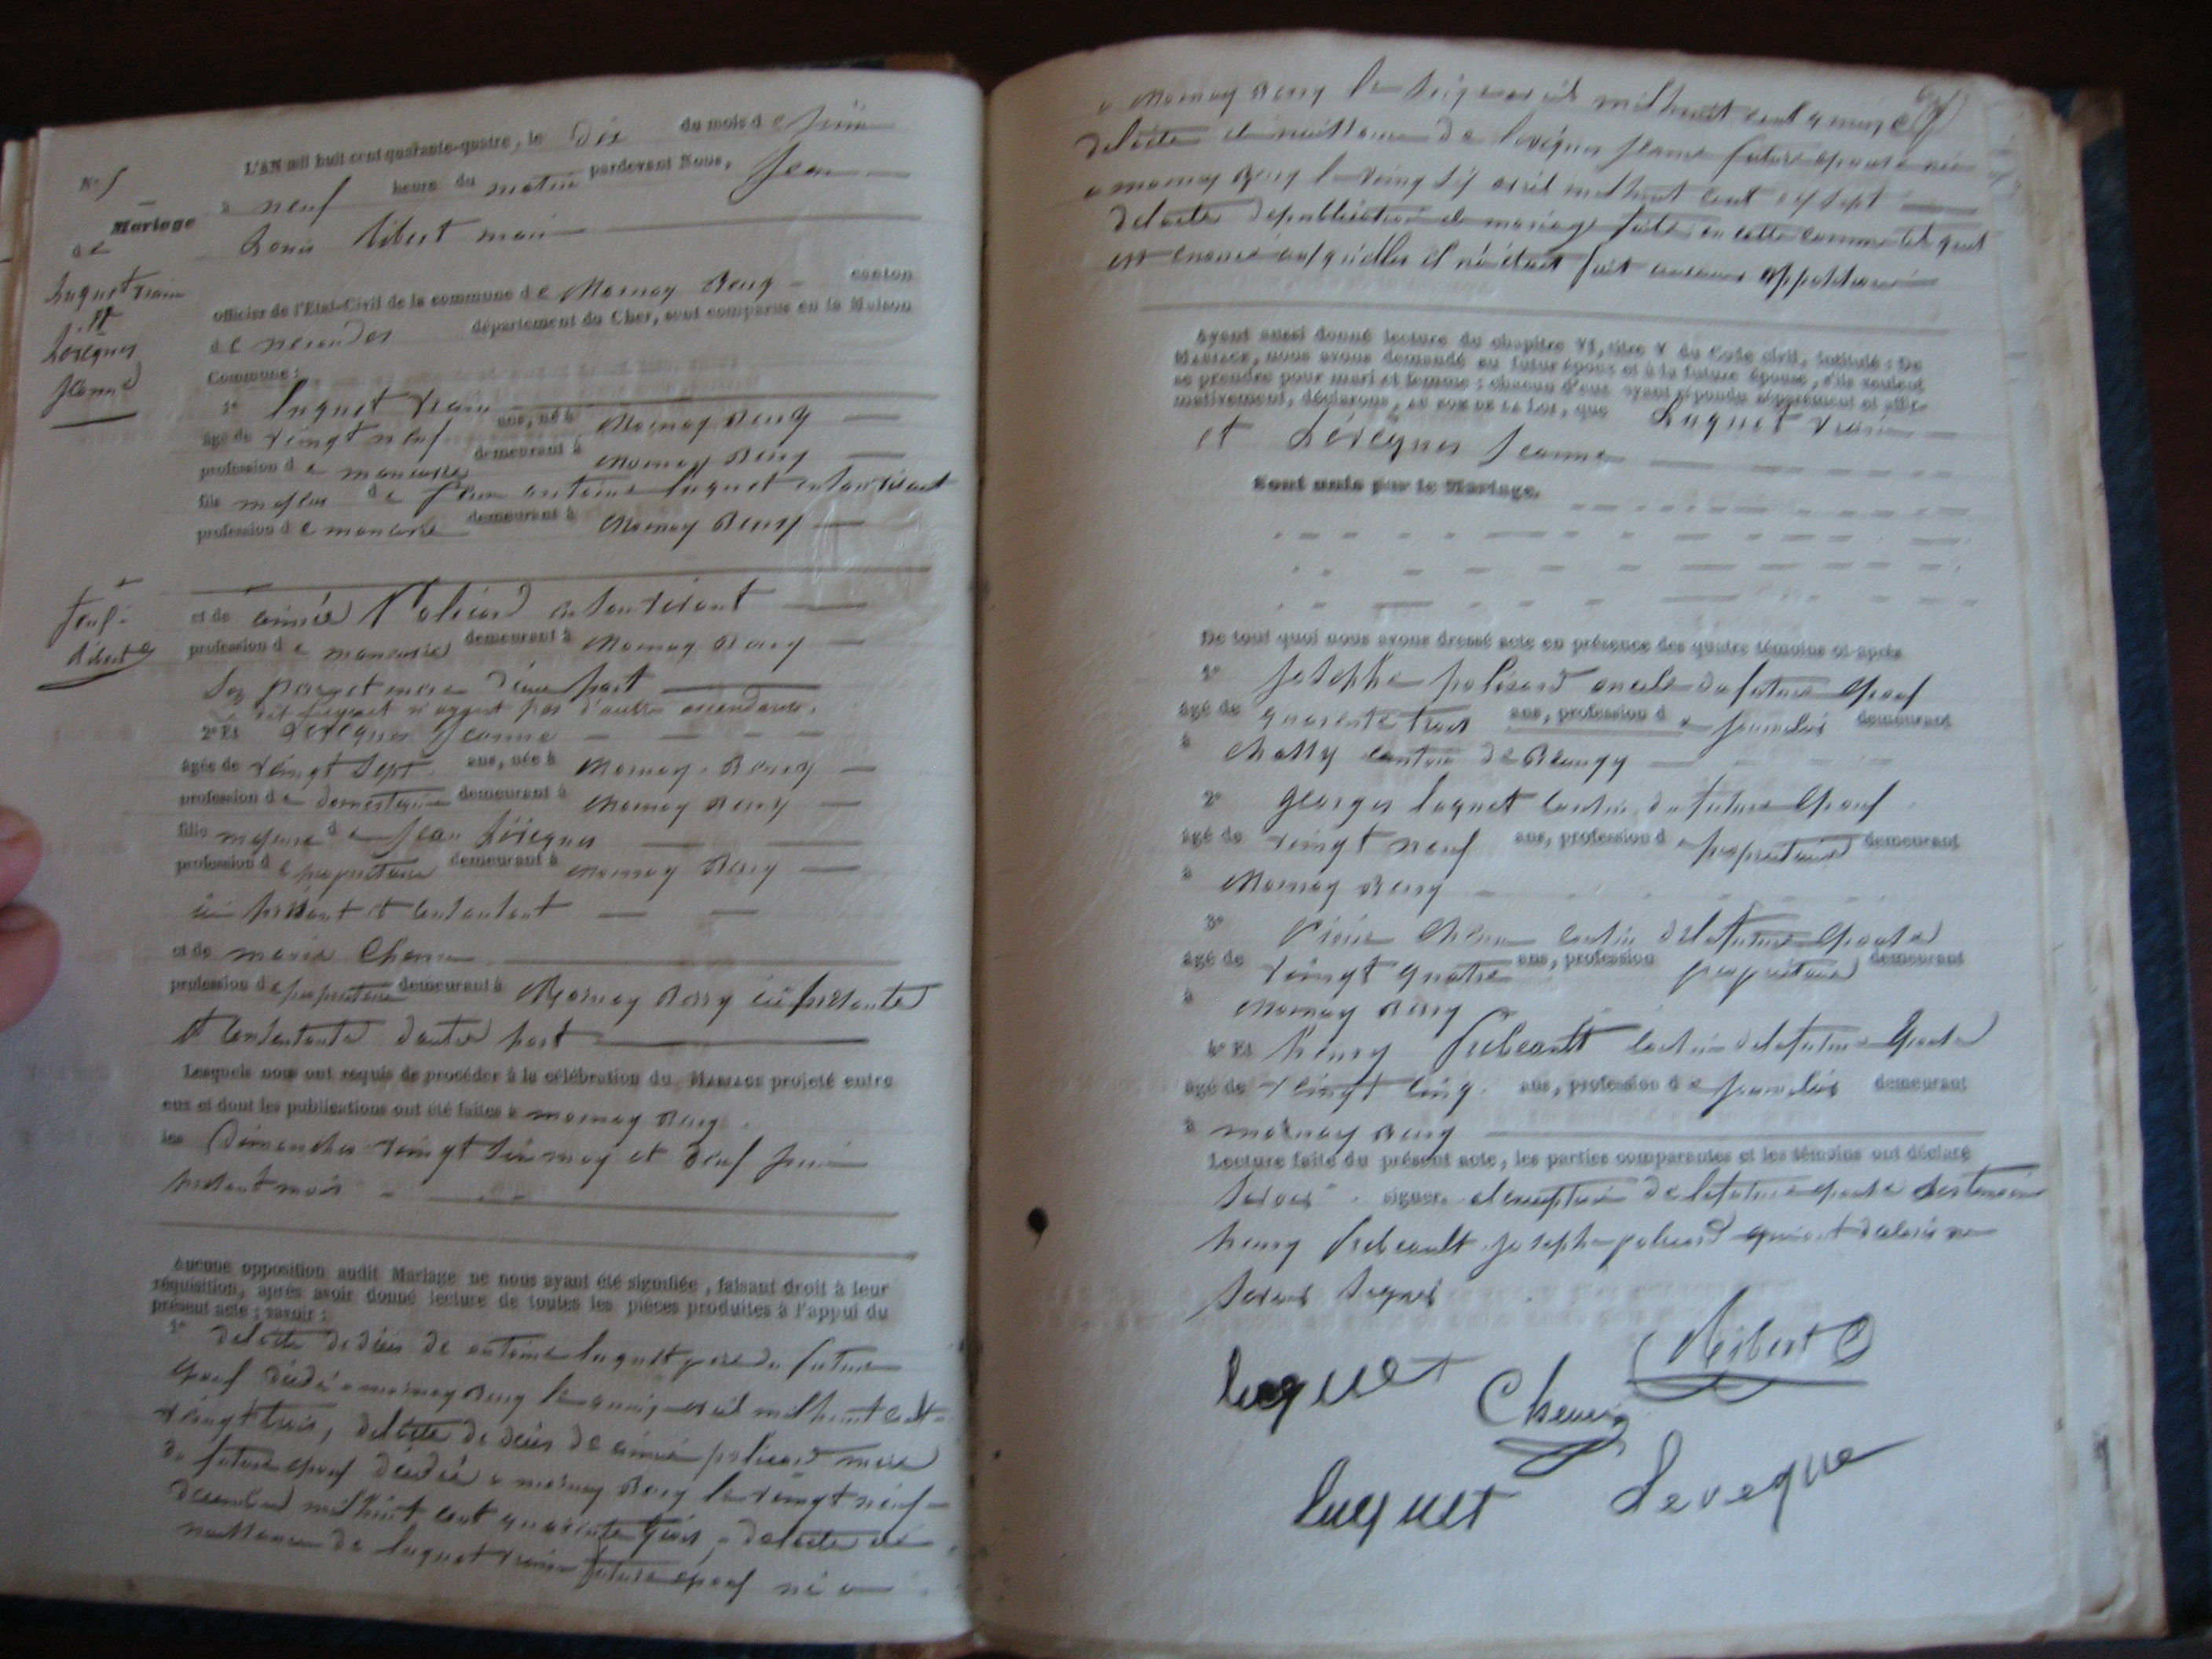 L'AN mil huit cent quarante-quatre, le dix du mois de juin
à neuf heure du matin pardevant Nous, Jean
Louis Ribert maire
officier de l'Etat-Civil de la commune de Mornay Berry canton
de nerondes département du Cher, sont comparus en la Maison
Commune :
1° luquet vrain
âgé de vingt neuf ans, né à Mornay Berry
profession de manœuvre demeurant à Mornay Berry
fils majeur de Jean antoine luquet en son vivant
profession de manœuvre demeurant à Mornay Berry
N° 5
Mariage
de
luquet vrain
et
Leveques
jeanne
Ribert
et de aimée Policard en son vivant
profession de manœuvre demeurant à Mornay Berry
Ses père et mere d'une part
Le dit luquet n'ayant pas d'autre ascendants.
2° Et Leveques Jeanne
âgée de vingt sept ans, née à Mornay Berry
profession de domestique demeurant à Mornay Berry
fille majeure de Jean Lévéques
profession de propriétaire demeurant à Mornay Berry
ici présent et consentant
et de marie Chenu
profession de propriétaire demeurant à Mornay Berry ici présente
et consentante d'autre part
Lesquels nous ont requis de procéder à la célébration du MARIAGE projeté entre
eux et dont les publications ont été faites à mornay Berry
les Dimanches vingt six may et deuf juin
présent mois
Aucune opposition audit Mariage ne nous ayant été signifiée, faisant droit à leur
réquisition, après avoir donné lecture de toutes les pièces produites à l'appui du
présent acte ; savoir :
1° de l'acte de décès de antoine luquet pere du future
epouf décédé a mornay Berry le avril mil huit cent
vingt trois, de l'acte de décès de aimée policard mere
du future epouf décédée a mornay Berry le vingt neuf
décembre mil huit cent quarente trois, de l'acte de
naissance de luquet vrain future epouf né a
a Mornay Berry le avril mil huit cent quinze
de l'acte de naissance de leveques jeanne future epouse née
a mornay Berry le avril mil huit cent dix sept
de l'acte de publication de mariage faite en cette commune tel quel
est enoncé auquelles il n'a été fait aucune oppotition
Ayant aussi donné lecture du chapitre VI, titre V du Code civil, intitulé : DU
MARIAGE, nous avons demandé au futur époux et à la future épouse, s'ils veulent
se prendre pour mari et femme ; chacun d'eux ayant répondu séparément et affir-
mativement, déclarons, AU NOM DE LA LOI, que Luquet vrain
et Lévéques Jeanne
Sont unis par le Mariage.
De tout quoi nous avons dressé acte en présence des quatre témoins ci-après
1° Josephe policard oncle du future epouf
âgé de quarente trois ans, profession de journalier demeurant
à Chassy canton de Beaugy
2° georges luquet cousin du future epouf
âgé de vingt neuf ans, profession de propriétaire demeurant
à Mornay Berry
3° Pierre Chenu cousin de la future epouse
âgé de vingt quatre ans, profession propriétaire demeurant
à Mornay Berry
4° Et henry cousin de la future epouse
âgé de vingt cinq ans, profession de journalier demeurant
à mornay Berry
Lecture faite du présent acte, les parties comparantes et les témoins ont déclaré
savoir signer. de la future epouse
henry josephe policard qui ont déclaré ne
savoir signer
luquet
Chenu
Ribert
luquet
Leveque